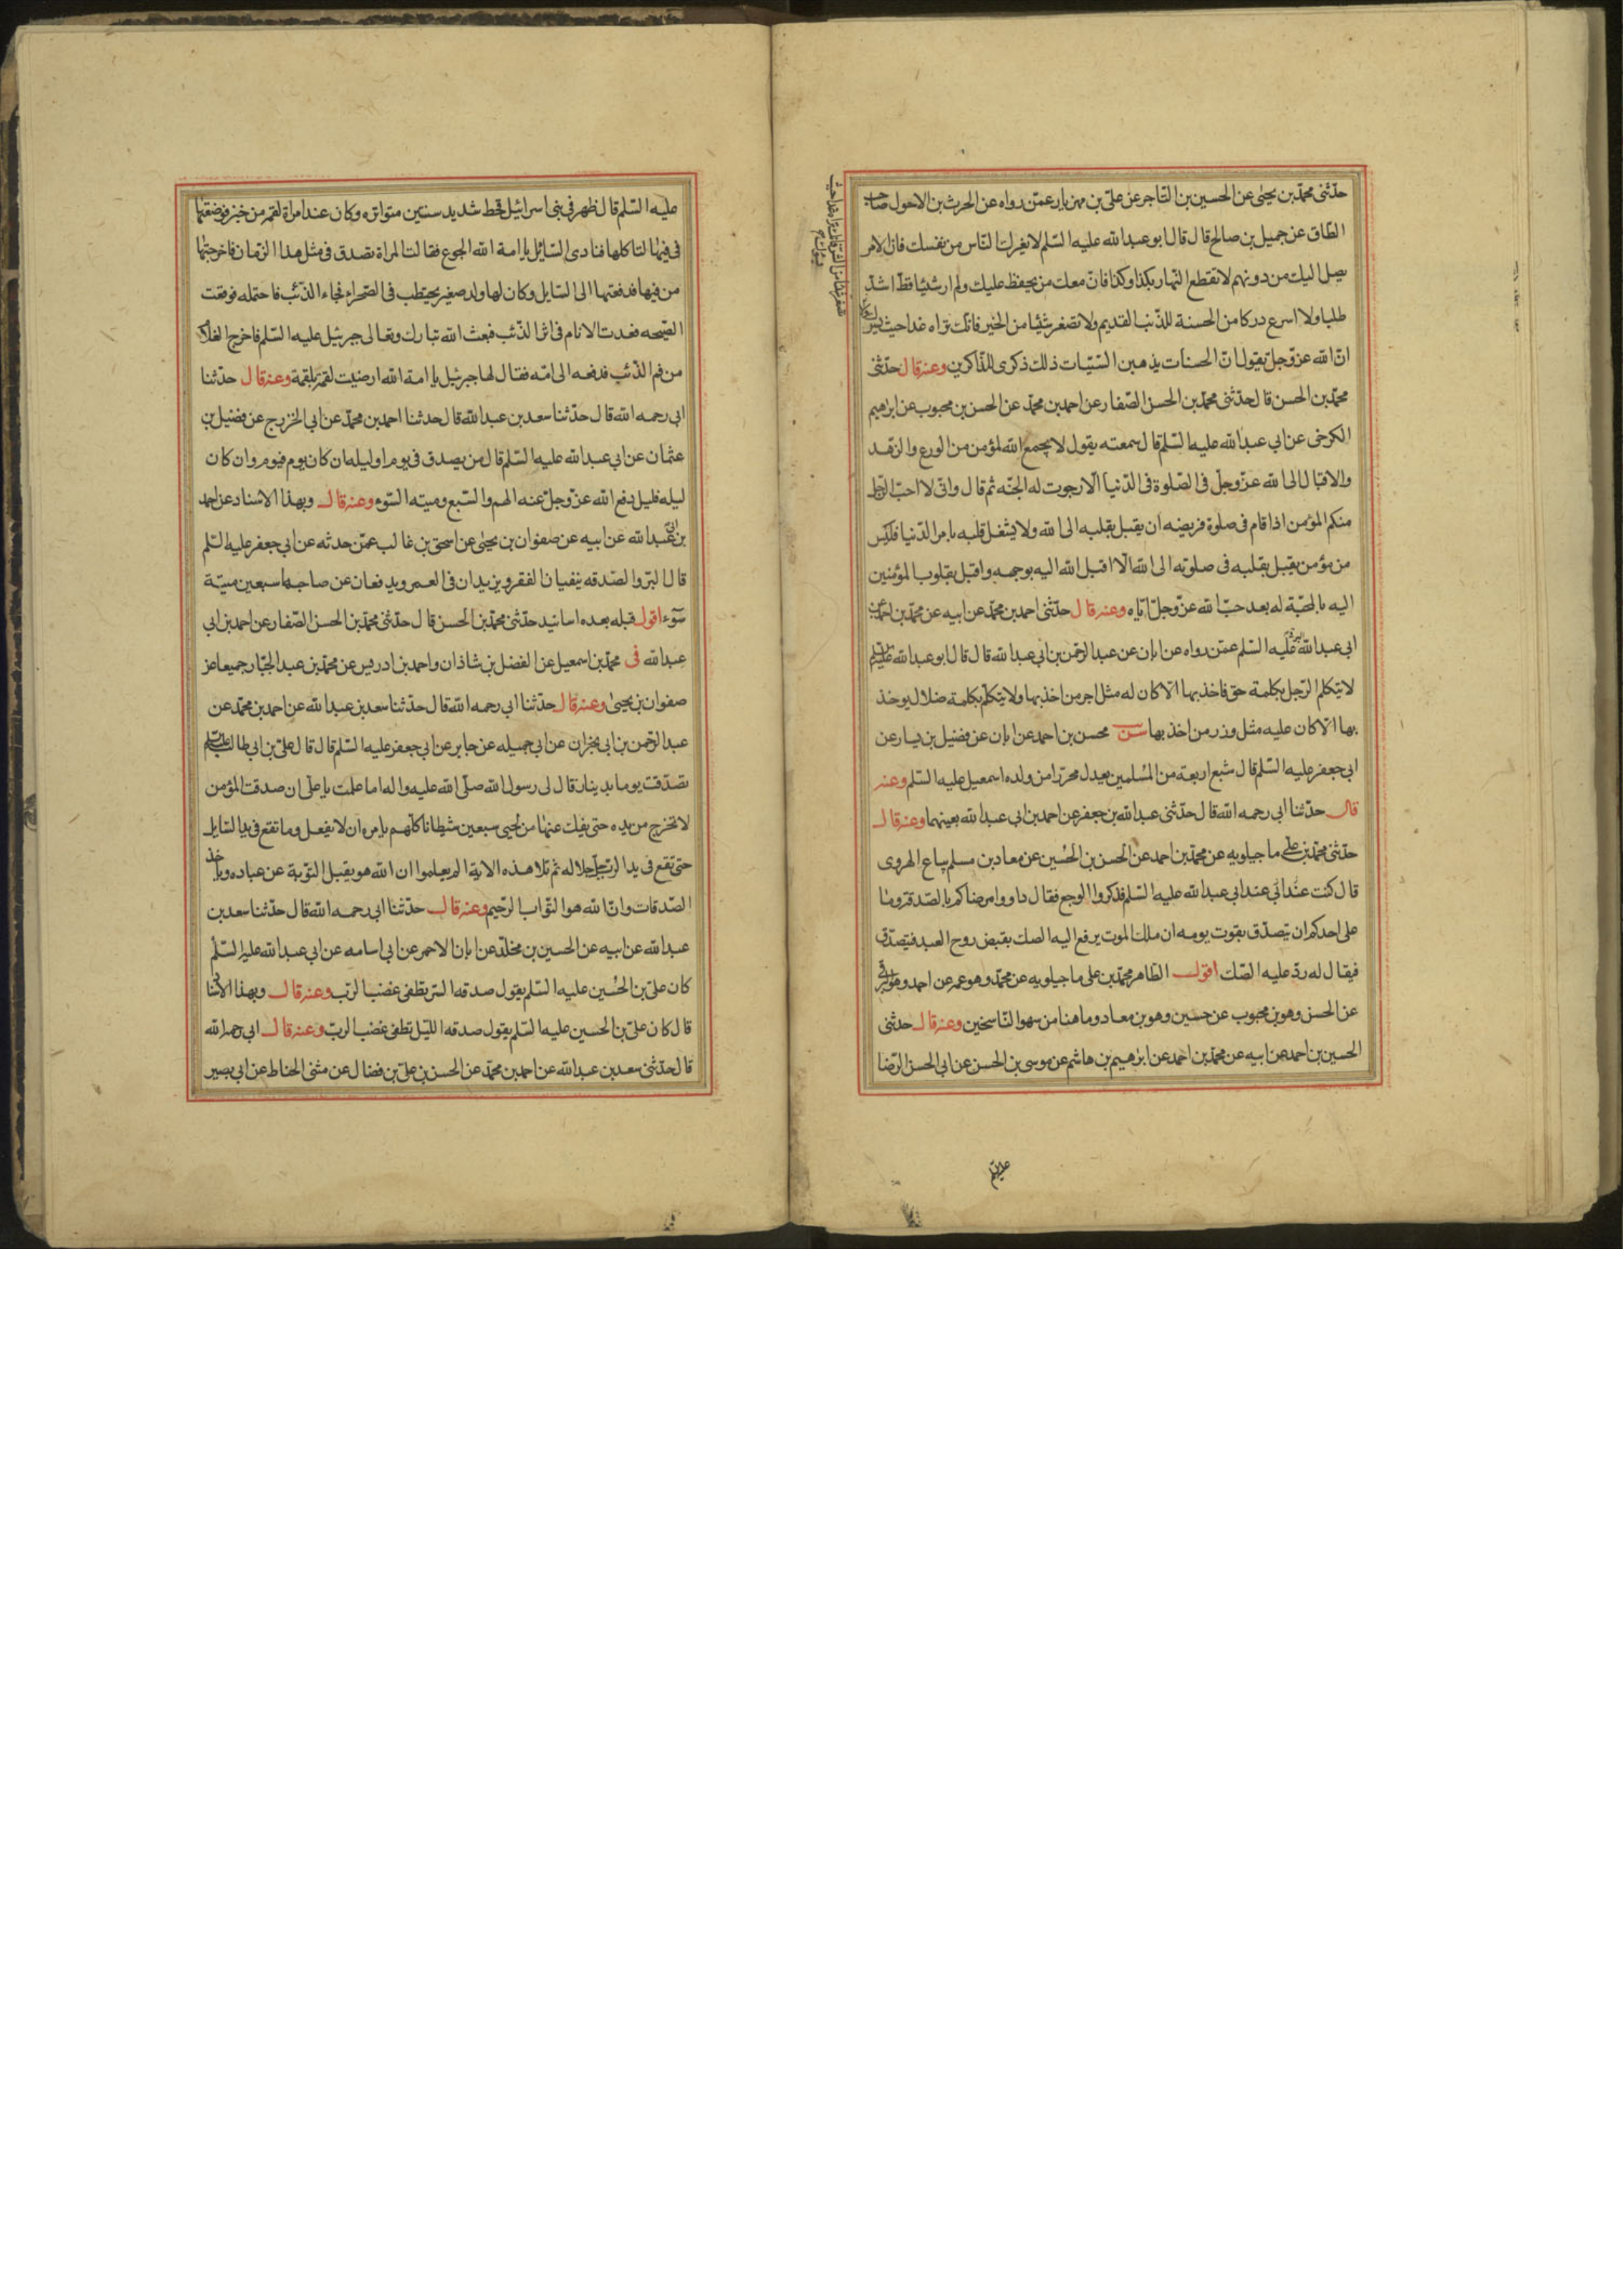 حدّثنى محمّد بن يحيى عن الحسين بن التاجر عن علىّ بن مهزيار عمّن رواه عن الحرث بن الاحول صاحب
الطّاق عن جميل بن صالح قال قال ابو عبد الله عليه السّلم لا تغرنك النّاس من نفسك فان الامر
يصل اليك من دونهم لا تقطع النّهار بكذا وكذا فانّ معك من يحفظ عليك ولم ار شيئا قطّ اشدّ
طلبا ولا اسرع دركا من الحسنة للذّنب القديم ولا تصغر شيئا من الخير فانّك تراه غدا حيث
انّ الله عزّ وجلّ يقول انّ الحسنات يذهبن السّيّئات ذلك ذكرى للذّاكرين وعنه قال حدّثنى
محمّد بن الحسن قال حدّثنى محمّد بن الحسن الصّفار عن احمد بن محمّد عن الحسن بن محبوب عن ابرهيم
الكرخى عن ابى عبد الله عليه السّلم قال سمعته يقول لا يجمع الله لمؤمن من الورع والزهد
والاقبال الى الله عزّ وجلّ فى الصّلوة فى الدّنيا الّا رجوت له الجنّه ثم قال وانّى لا احبّ الرّجل
منكم المؤمن اذا قام فى صلوة فريضه ان يقبل بقلبه الى الله ولا يشغل قلبه بامر الدّنيا فليس
من مؤمن يقبل بقلبه فى صلوته الى الله الّا اقبل الله اليه بوجهه واقبل بقلوب المؤمنين
اليه بالمحبّة له بعد حبّ الله عزّ وجلّ ايّاه وعنه قال حدّثنى احمد بن محمّد عن ابيه عن محمّد بن احمد عن
ابى عبد الله عليه السّلم عمّن رواه عن ابان عن عبد الرّحمن بن ابى عبد الله قال قال ابو عبد الله عليه السلم
لا يتكلم الرّجل بكلمة حق فاخذ بها الّا كان له مثل اجر من اخذ بها ولا يتكلّم بكلمة ضلال يوخذ
بها الّا كان عليه مثل وزر من اخذ بها سن محسن بن احمد عن ابان عن فضيل بن يسار عن
ابى جعفر عليه السّلم قال شبع اربعة من المسلمين يعدل محرّرا من ولد اسمعيل عليه السّلم وعنه
قال حدّثنا ابى رحمه الله قال حدّثنى عبد الله بن جعفر عن احمد بن ابى عبد الله بعينهما وعنه قال
حدّثنى محمّد بن على ماجيلويه عن محمّد بن احمد عن الحسن بن الحسين عن معاد بن مسلم بياع الهروى
قال كنت عند ابى عبد الله عليه السّلم فذكروا الوجع فقال داووا مرضاكم بالصّدقة وما
على احدكم ان يتصدّق بقوت يومه ان ملك الموت يرفع اليه الصك بقبض روح العبد فيتصدّق
فيقال له ردّ عليه الصّك اقول الظاهر محمّد بن على ماجيلويه عن محمّد وهو عمه عن احمد وهو البرقى
عن الحسن وهو بن محبوب عن حسين وهو بن معاد وما هنا من سهو النّاسخين وعنه قال حدثنى
الحسين بن احمد عن ابيه عن محمّد بن احمد عن ابرهيم بن هاشم عن موسى بن الحسن عن ابى الحسن الرّضا
عليه السّلم قال ظهر فى بنى اسرائيل قحط شديد سنتين متواتره وكان عند امراة لقمه من خبز فوضعتها
فى فيها لتاكلها فنادى السّايل يا امة الله الجوع فقالت المراة تصدق فى مثل هذا الزّمان فاخرجتها
من فيها فدفعتها الى السّايل وكان لها ولد صغير يحتطب فى الصّحراء فجاء الذّئب فاحتمله فوقعت
الصّيحه فعدت الام فى اثر الذّئب فبعث الله تبارك وتعالى جبرئيل عليه السّلم فاخرج الغلام
من فم الذّئب فدفعه الى امّه فقال لها جبرئيل يا امة الله ارضيت لقمة بلقمة وعنه قال حدّثنا
ابى رحمه الله قال حدّثنا سعد بن عبد الله قال حدثنا احمد بن محمّد عن ابى الخزرج عن فضيل بن
عثمان عن ابى عبد الله عليه السّلم قال من يصدق فى يوم او ليله ان كان يوم فيوم وان كان
ليله فليل دفع الله عزّ وجلّ عنه الهم والسّبع وميته السّوء وعنه قال وبهذا الاسناد عن احمد
بن ابى عبد الله عن ابيه عن صفوان بن يحيى عن اسحق بن غالب عمّن حدثه عن ابى جعفر عليه السّلم
قال البرّ والصّدقه ينفيان الفقر ويزيدان فى العمر ويدفعان عن صاحبهما سبعين ميتة
سوء اقول قبله بعده اسانيد حدّثنى محمّد بن الحسن قال حدّثنى محمّد بن الحسن الصّفار عن احمد بن ابى
عبد الله فى محمّد بن اسمعيل عن الفضل بن شاذان واحمد بن ادريس عن محمّد بن عبد الجبّار جميعا عن
صفوان بن يحيى وعنه قال حدّثنا ابى رحمه الله قال حدّثنا سعد بن عبد الله عن احمد بن محمّد عن
عبد الرّحمن بن ابى نجران عن ابى جميله عن جابر عن ابى جعفر عليه السّلم قال قال علىّ بن ابى طالب عليه السلم
تصدّقت يوما بدينار قال لى رسول الله صلّى الله عليه واله اما علمت يا على ان صدقت المؤمن
لا تخرج من يده حتى يفك عنها من لحيى سبعين شيطانا كلّهم يامره ان لا يفعل وما تقع فى يد السّايل
حتى تقع فى يد الرّب جلّ جلاله ثم تلا هذه الاية الم يعلموا ان الله هو يقبل التّوبة عن عباده وياخذ
الصّدقات وانّ الله هو التّواب الرّحيم وعنه قال حدّثنا ابى رحمه الله قال حدّثنا سعد بن
عبد الله عن ابيه عن الحسين بن مخلّد عن ابان الاحمر عن ابى اسامه عن ابى عبد الله عليه السّلم
كان علىّ بن الحسين عليه السّلم يقول صدقه السّر تطفى غضب الرّب وعنه قال وبهذا الاسناد
قال كان علىّ بن الحسين عليه السّلم يقول صدقه اللّيل تطفى غضب الربّ وعنه قال ابى رحمه الله
قال حدّثنى سعد بن عبد الله عن احمد بن محمّد عن الحسن بن علىّ بن فضال عن مثنى الحناط عن ابى بصير